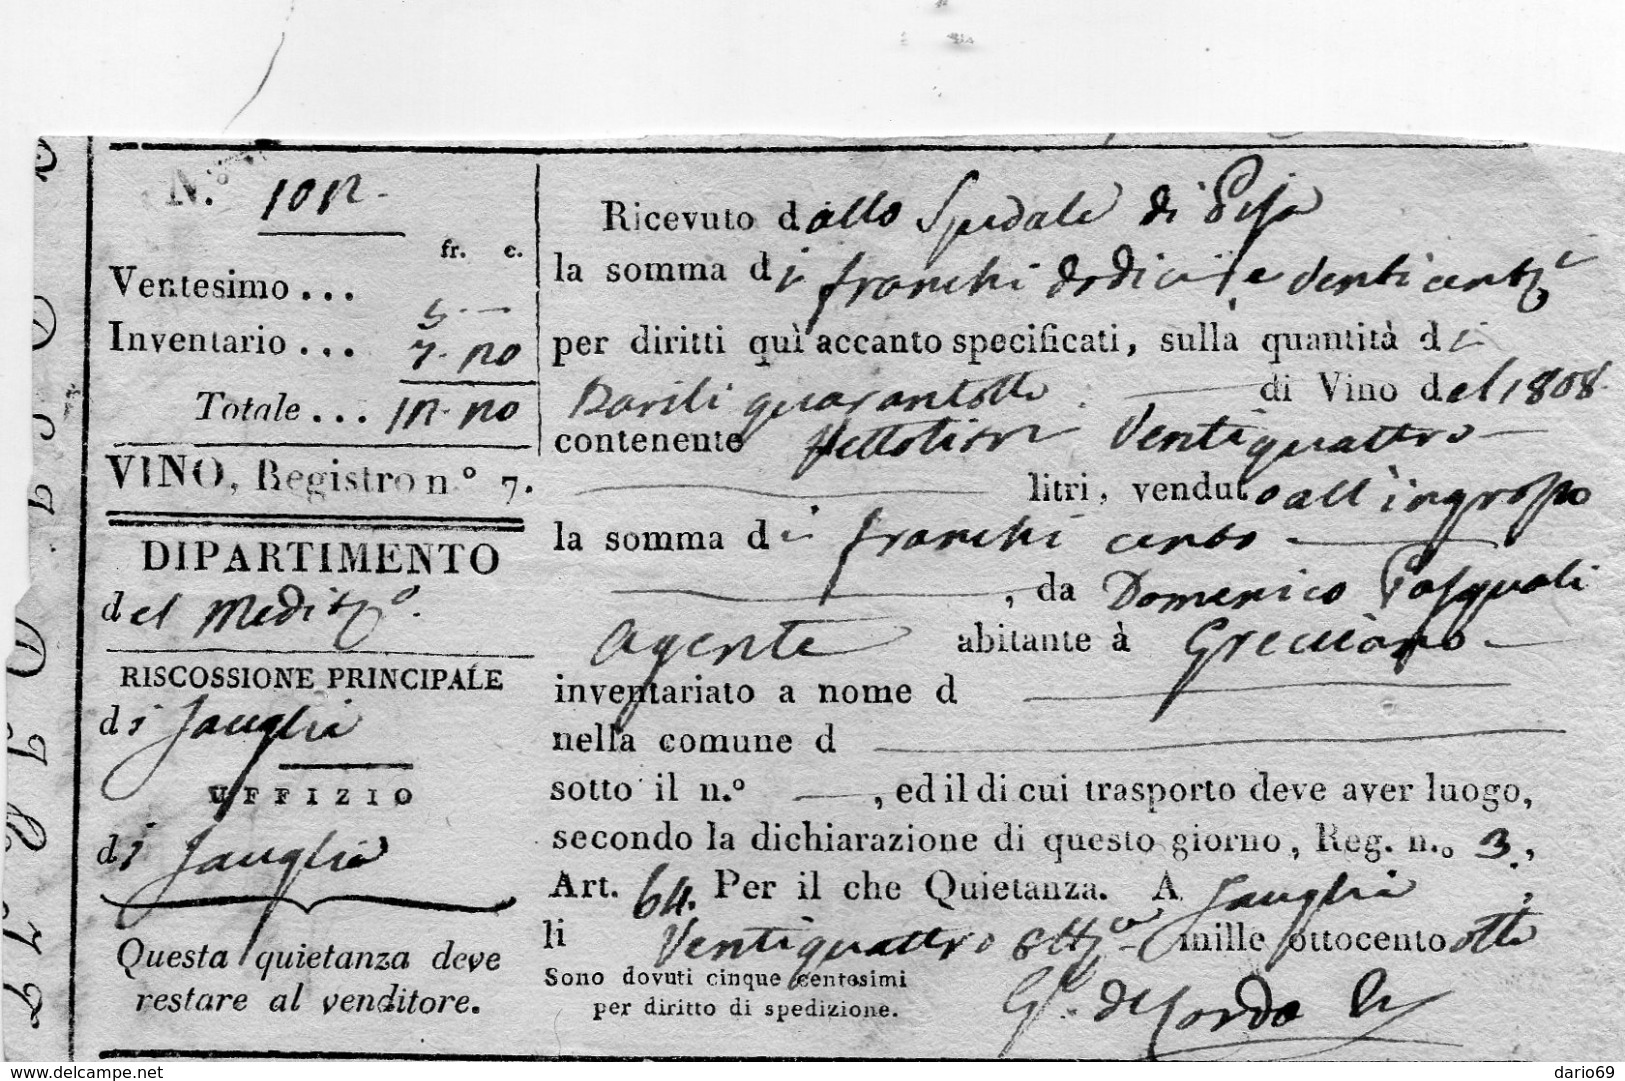 N. 1012.
fr. c.
Ventesimo ... 5 —
Inventario ... 7. 20
Totale ... 12. 20
VINO, Registro n.º 7.
DIPARTIMENTO
del Medit.º
RISCOSSIONE PRINCIPALE
di Fauglia
UFFIZIO
di Fauglia
Questa quietanza deve
restare al venditore.
Ricevuto dallo Spedale di Pisa
la somma di franchi dodici e venti cent.
per diritti quì accanto specificati, sulla quantità di
Barili quarantotto di Vino del 1808.
contenente Hettolitri Ventiquattro
litri, venduto all'ingrosso
la somma di franchi cento
, da Domenico Pasquali
Agente abitante à Grecciano
inventariato a nome d
nella comune d
sotto il n.º — , ed il di cui trasporto deve aver luogo,
secondo la dichiarazione di questo giorno, Reg. n.º 3,
Art. 64. Per il che Quietanza. A Fauglia
li Ventiquattro 8bre mille ottocento otto
Sono dovuti cinque centesimi
per diritto di spedizione.
www.delcampe.net
dario69